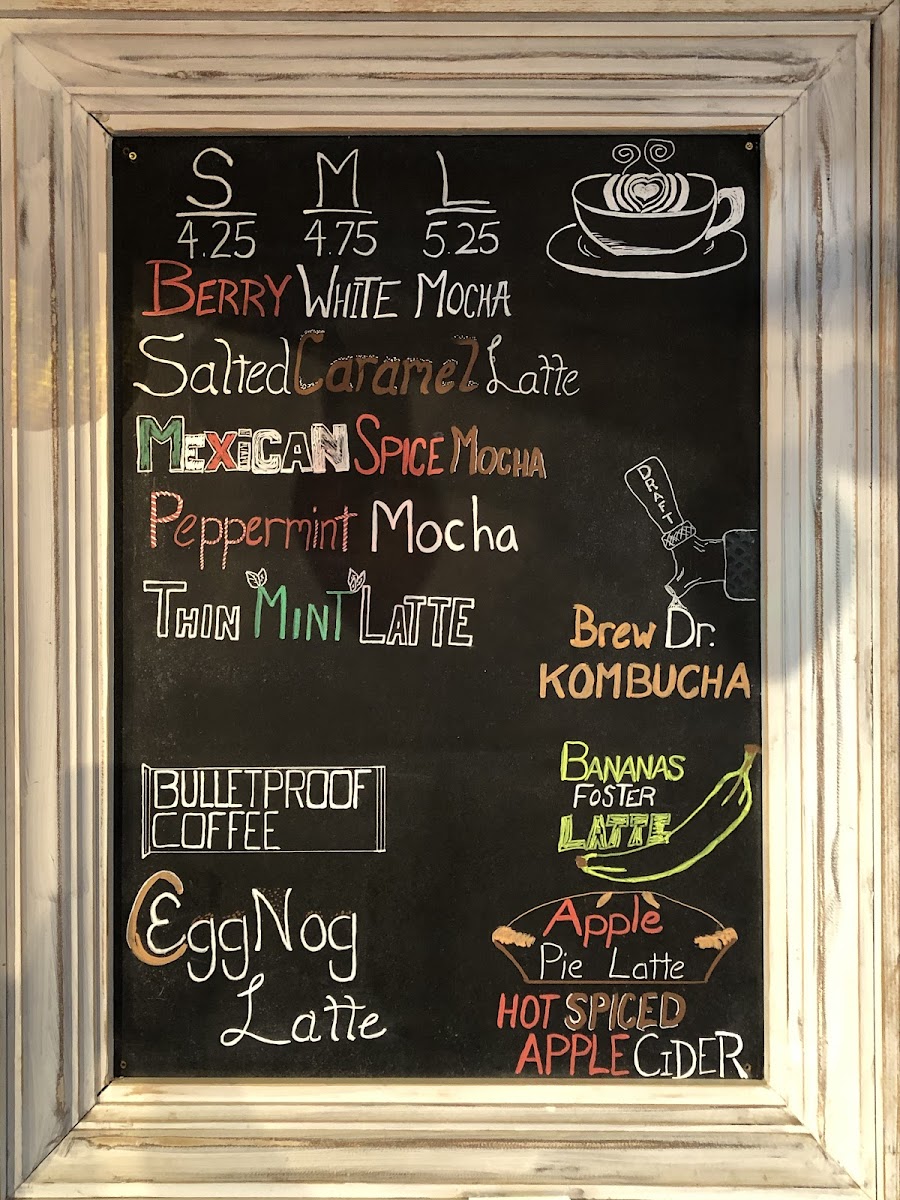 S M L
4.25 4.75 5.25
BERRY WHITE MOCHA
Salted Caramel Latte
MEXiCAN SPICE MOCHA
Peppermint Mocha
THIN MINT LATTE
DRAFT
Brew Dr.
KOMBUCHA
BULLETPROOF
COFFEE
BANANAS
FOSTER
LATTE
EggNog
Latte
Apple
Pie Latte
HOT SPICED
APPLE CiDER